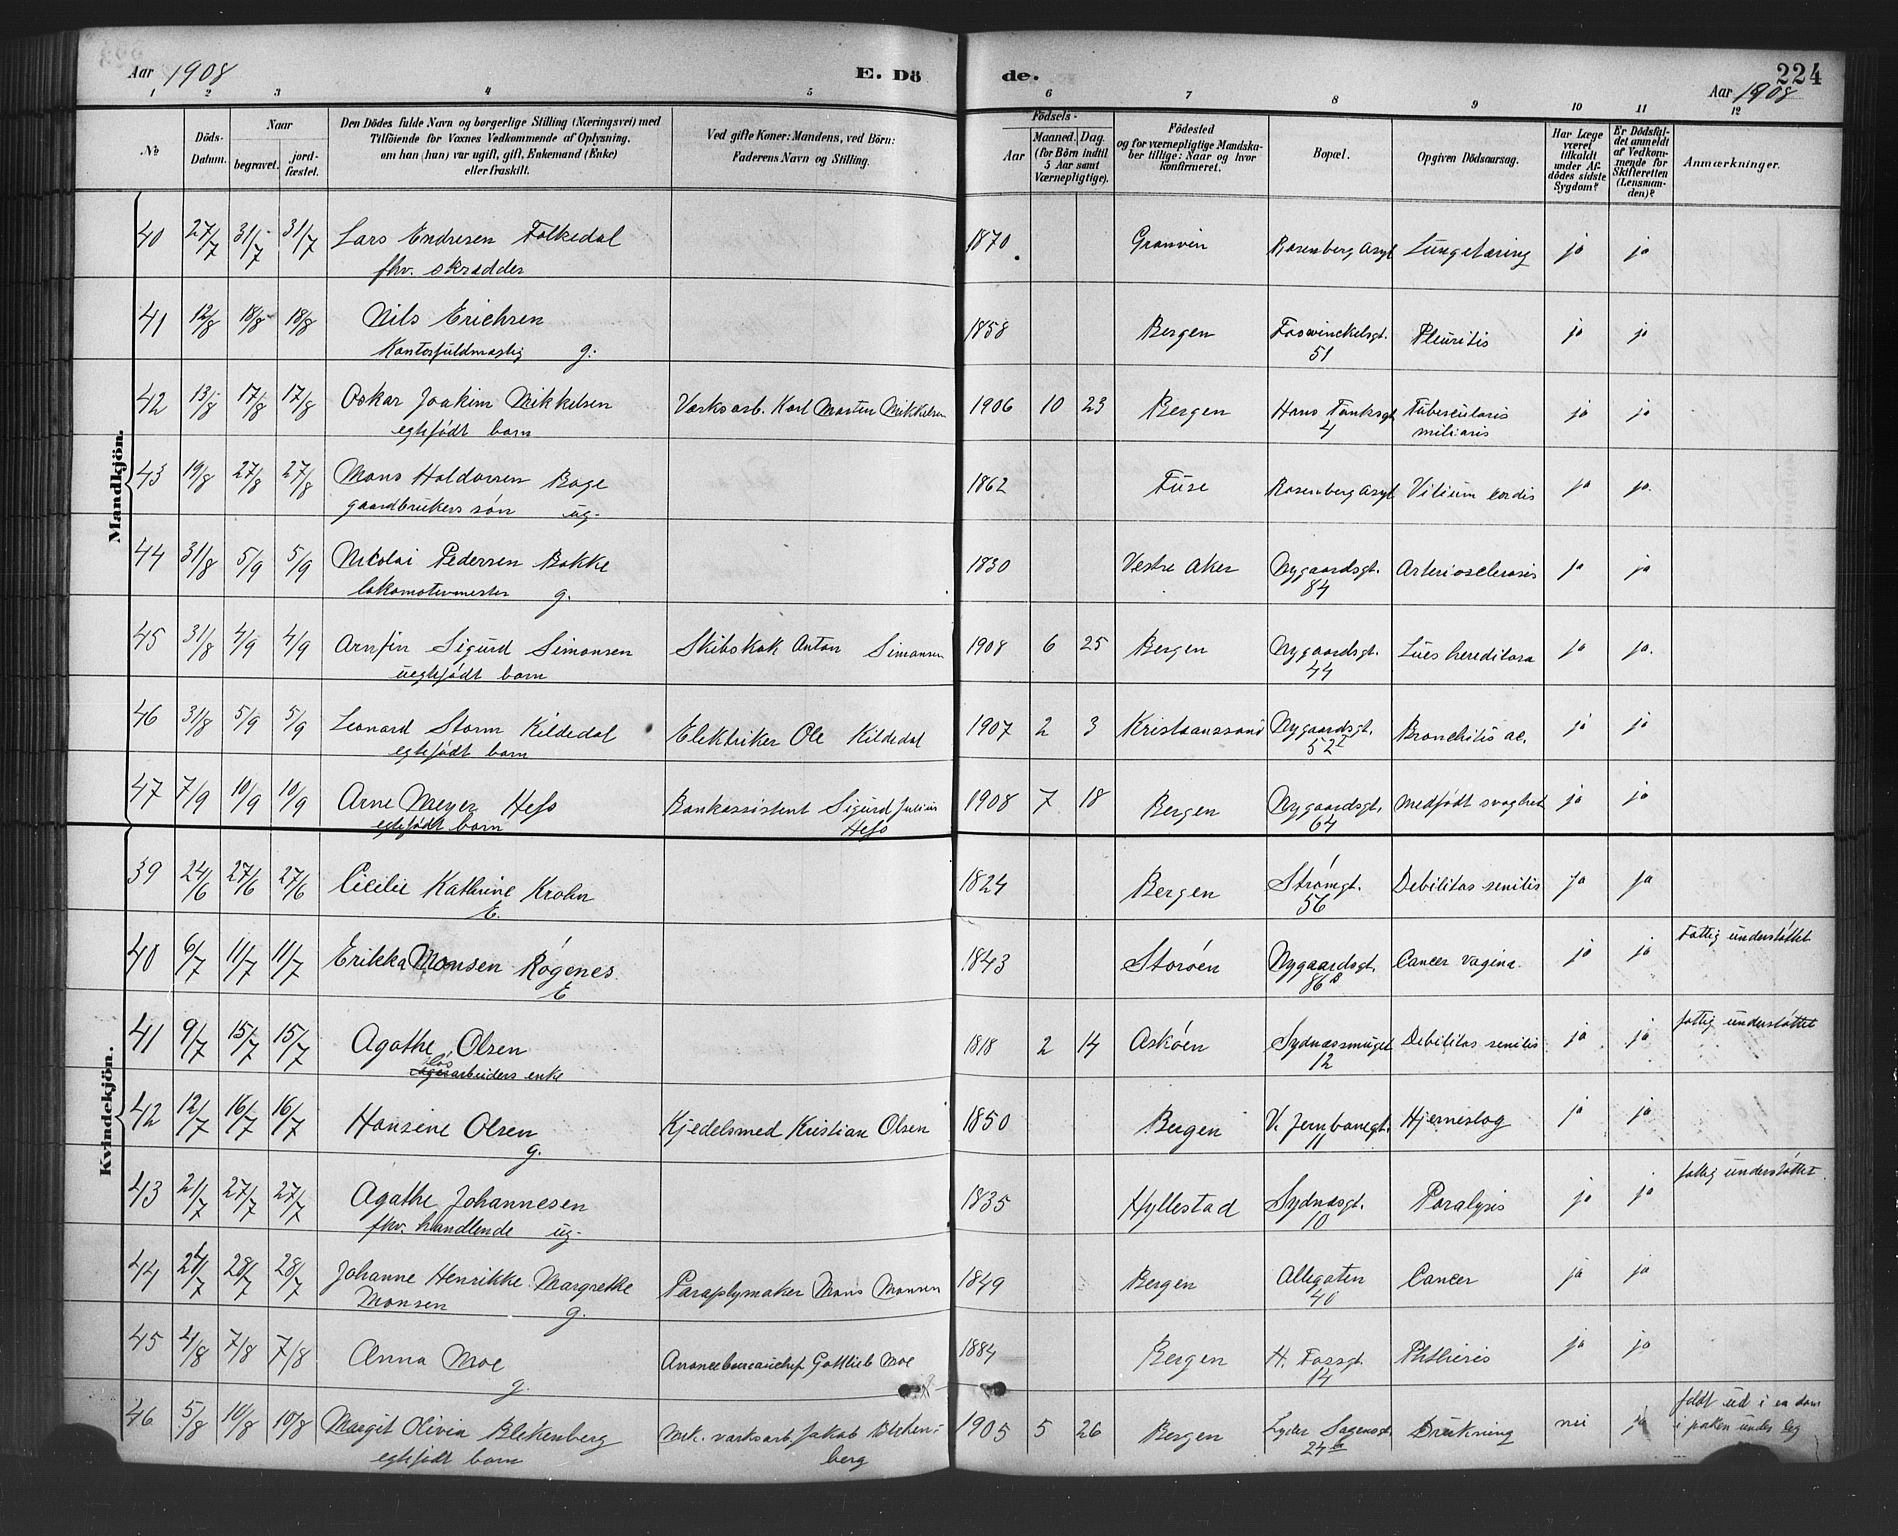 Aar 1908 E. Dö de. Aar 1908 224
1 2 3 4 5 6 7 8 9 10 11 12
No. Döds-Datum. Naar begravet. jordfæstet. Den Dödes fulde Navn og borgerlige Stilling (Næringsvei) med Tilföiende for Voxnes Vedkommende af Oplysning. om han (hun) var ugift, gift, Enkemand (Enke) eller fraskilt. Ved gifte Koner: Mandens, ved Börn: Faderens Navn og Stilling. Födsels- Aar Maaned. Dag. (for Börn indtil 5 Aar samt Værnepligtige). Födested og for værnepligtige Mandskaber tillige: Naar og hvor konfirmeret. Bopæl. Opgiven Dödsaarsag. Har Læge været tilkaldt under Afdödes sidste Sygdom? Er Dödsfaldet anmeldt af Vedkommende for Skifteretten (Lensmanden)? Anmærkninger.
Mandkjön.
40 27/7 31/7 31/7 Lars Endresen Folkedal 1870 Granvin Rosenberg Asyl Lungetæring ja ja
fhv. skrædder
41 12/8 18/8 18/8 Nils Erichsen 1858 Bergen Foswinckelsgt. Pleuritis ja ja
Kontorfuldmægtig g. 51
42 13/8 17/8 17/8 Oskar Joakim Mikkelsen Værksarb. Karl Morten Mikkelsen 1906 10 23 Bergen Hans Tanksgt. Tubercularis ja ja
egtefødt barn 4 miliaris
43 19/8 27/8 27/8 Mons Haldorsen Boge 1862 Fuse Rosenberg Asyl Vitium cordis ja ja.
gaardbrukers søn ug.
44 31/8 5/9 5/9 Nicolai Pedersen Bakke 1830 Vestre Aker Nygaardsgt. Arteriosclerosis ja ja
lokomotivmester g. 84
45 31/8 4/9 4/9 Arnfin Sigurd Simonsen Skibskok Anton Simonsen 1908 6 25 Bergen Nygaardsgt. Lues hereditara ja ja.
uegtefødt barn 44
46 31/8 5/9 5/9 Leonard Storm Kildedal Elektriker Ole Kildedal 1907 2 3 Kristianssand Nygaardsgt. Bronchitis ac. ja ja
egtefødt barn 52 I
47 7/9 10/9 10/9 Arne Meyer Hess Bankassistent Sigurd Julius 1908 7 18 Bergen Nygaardsgt. Medfødt svaghet ja ja
egtefødt barn Hess 64
Kvindekjön.
39 24/6 27/6 27/6 Cicilie Kathrine Krohn 1824 Bergen Strømgt. Debilitas senilis ja ja
E. 56
40 6/7 11/7 11/7 Erikka Monsen Røgenes 1843 Storøen Nygaardsgt. Cancer vagina. ja ja Fattig understøttet
E 86 B
41 9/7 15/7 15/7 Agathe Olsen 1818 2 14 Askøen Sydnæssmuget Debilitas senilis ja ja fattig understøttet
løsarbeiders enke 12
42 12/7 16/7 16/7 Hansine Olsen Kjedelsmed Kristian Olsen 1850 Bergen V. Jernbanegt. Hjerneslag ja ja
g. 11
43 21/7 27/7 27/7 Agathe Johannesen 1835 Hyllestad Sydnæsgt. Paralysis ja ja fattig understøttet.
fhv. handlende ug. 10
44 24/7 28/7 28/7 Johanne Henrikke Margrethe Paraplymaker Mons Monsen 1849 Bergen Allegaten Cancer ja ja
Monsen g. 40
45 4/8 7/8 7/8 Anna Moe Anoncebureauchef Gottlieb Moe 1884 Bergen H. Fossgt. Phthisis ja ja
g. 14
46 5/8 10/8 10/8 Margit Olivia Blekenberg Mek. værksarb. Jakob Bleken- 1905 5 26 Bergen Lyder Sagensgt. Drukning nei ja faldt ud i en dam
egtefødt barn berg 24 i parken under leg